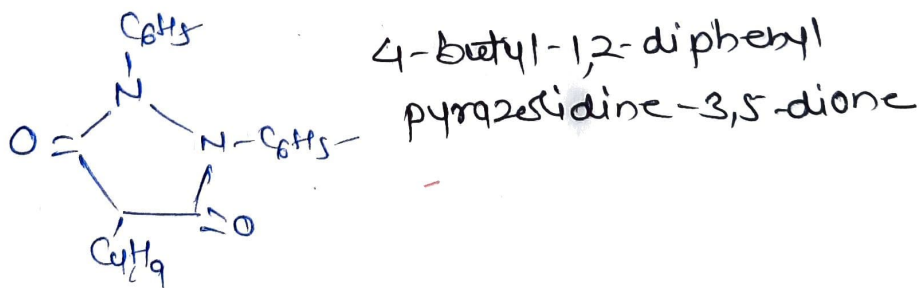 C6H5
N
O
N-C6H5-
O
C4H9
4-butyl-1,2-diphenyl
pyrazolidine-3,5-dione